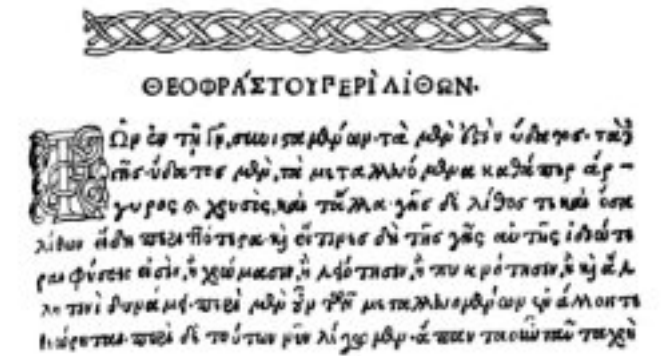 ΘΕΟΦΡΑΣΤΟΥ ΠΕΡῚ ΛΊΘΩΝ.
ΤΩν ἐν τῇ Γῇ, συνισταμένων· τὰ μέν ἐστιν ὕδατος· τὰ δὲ
γῆς· ὕδατος μὲν, τὰ μεταλλευόμενα καθάπερ ἄρ-
γυρος καὶ χρυσὸς, καὶ τἄλλα· γῆς δὲ λίθος τε καὶ ὅσα
λίθων εἴδη περιττότερα· καὶ εἴ τινες δὴ τῆς γῆς αὐτῆς ἰδιώτε
ραι φύσεις εἰσὶν, ἢ χρώμασιν, ἢ λειότησιν, ἢ πυκνότησιν, ἢ καὶ ἄλ
λη τινὶ δυνάμει· περὶ μὲν οὖν τῶν μεταλλευομένων ἐν ἄλλοις τε
θεώρηται· περὶ δὲ τούτων νῦν λέγωμεν· ἅπαντα οὖν ταῦτα χρὴ